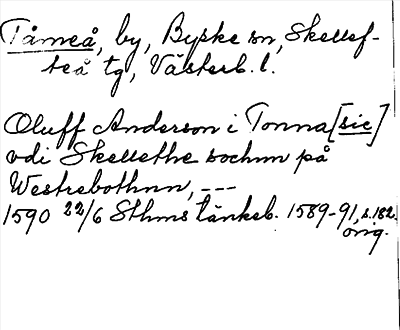 Tåmeå, by, Byske sn, Skellef-
teå tg, Västerb. l.
Oluff Anderson i Tonna [sic]
vdi Skellethe sochnn på
Westrebothnn, ---
1590 22/6 Sthms tänkeb. 1589-91, s. 182.
orig.